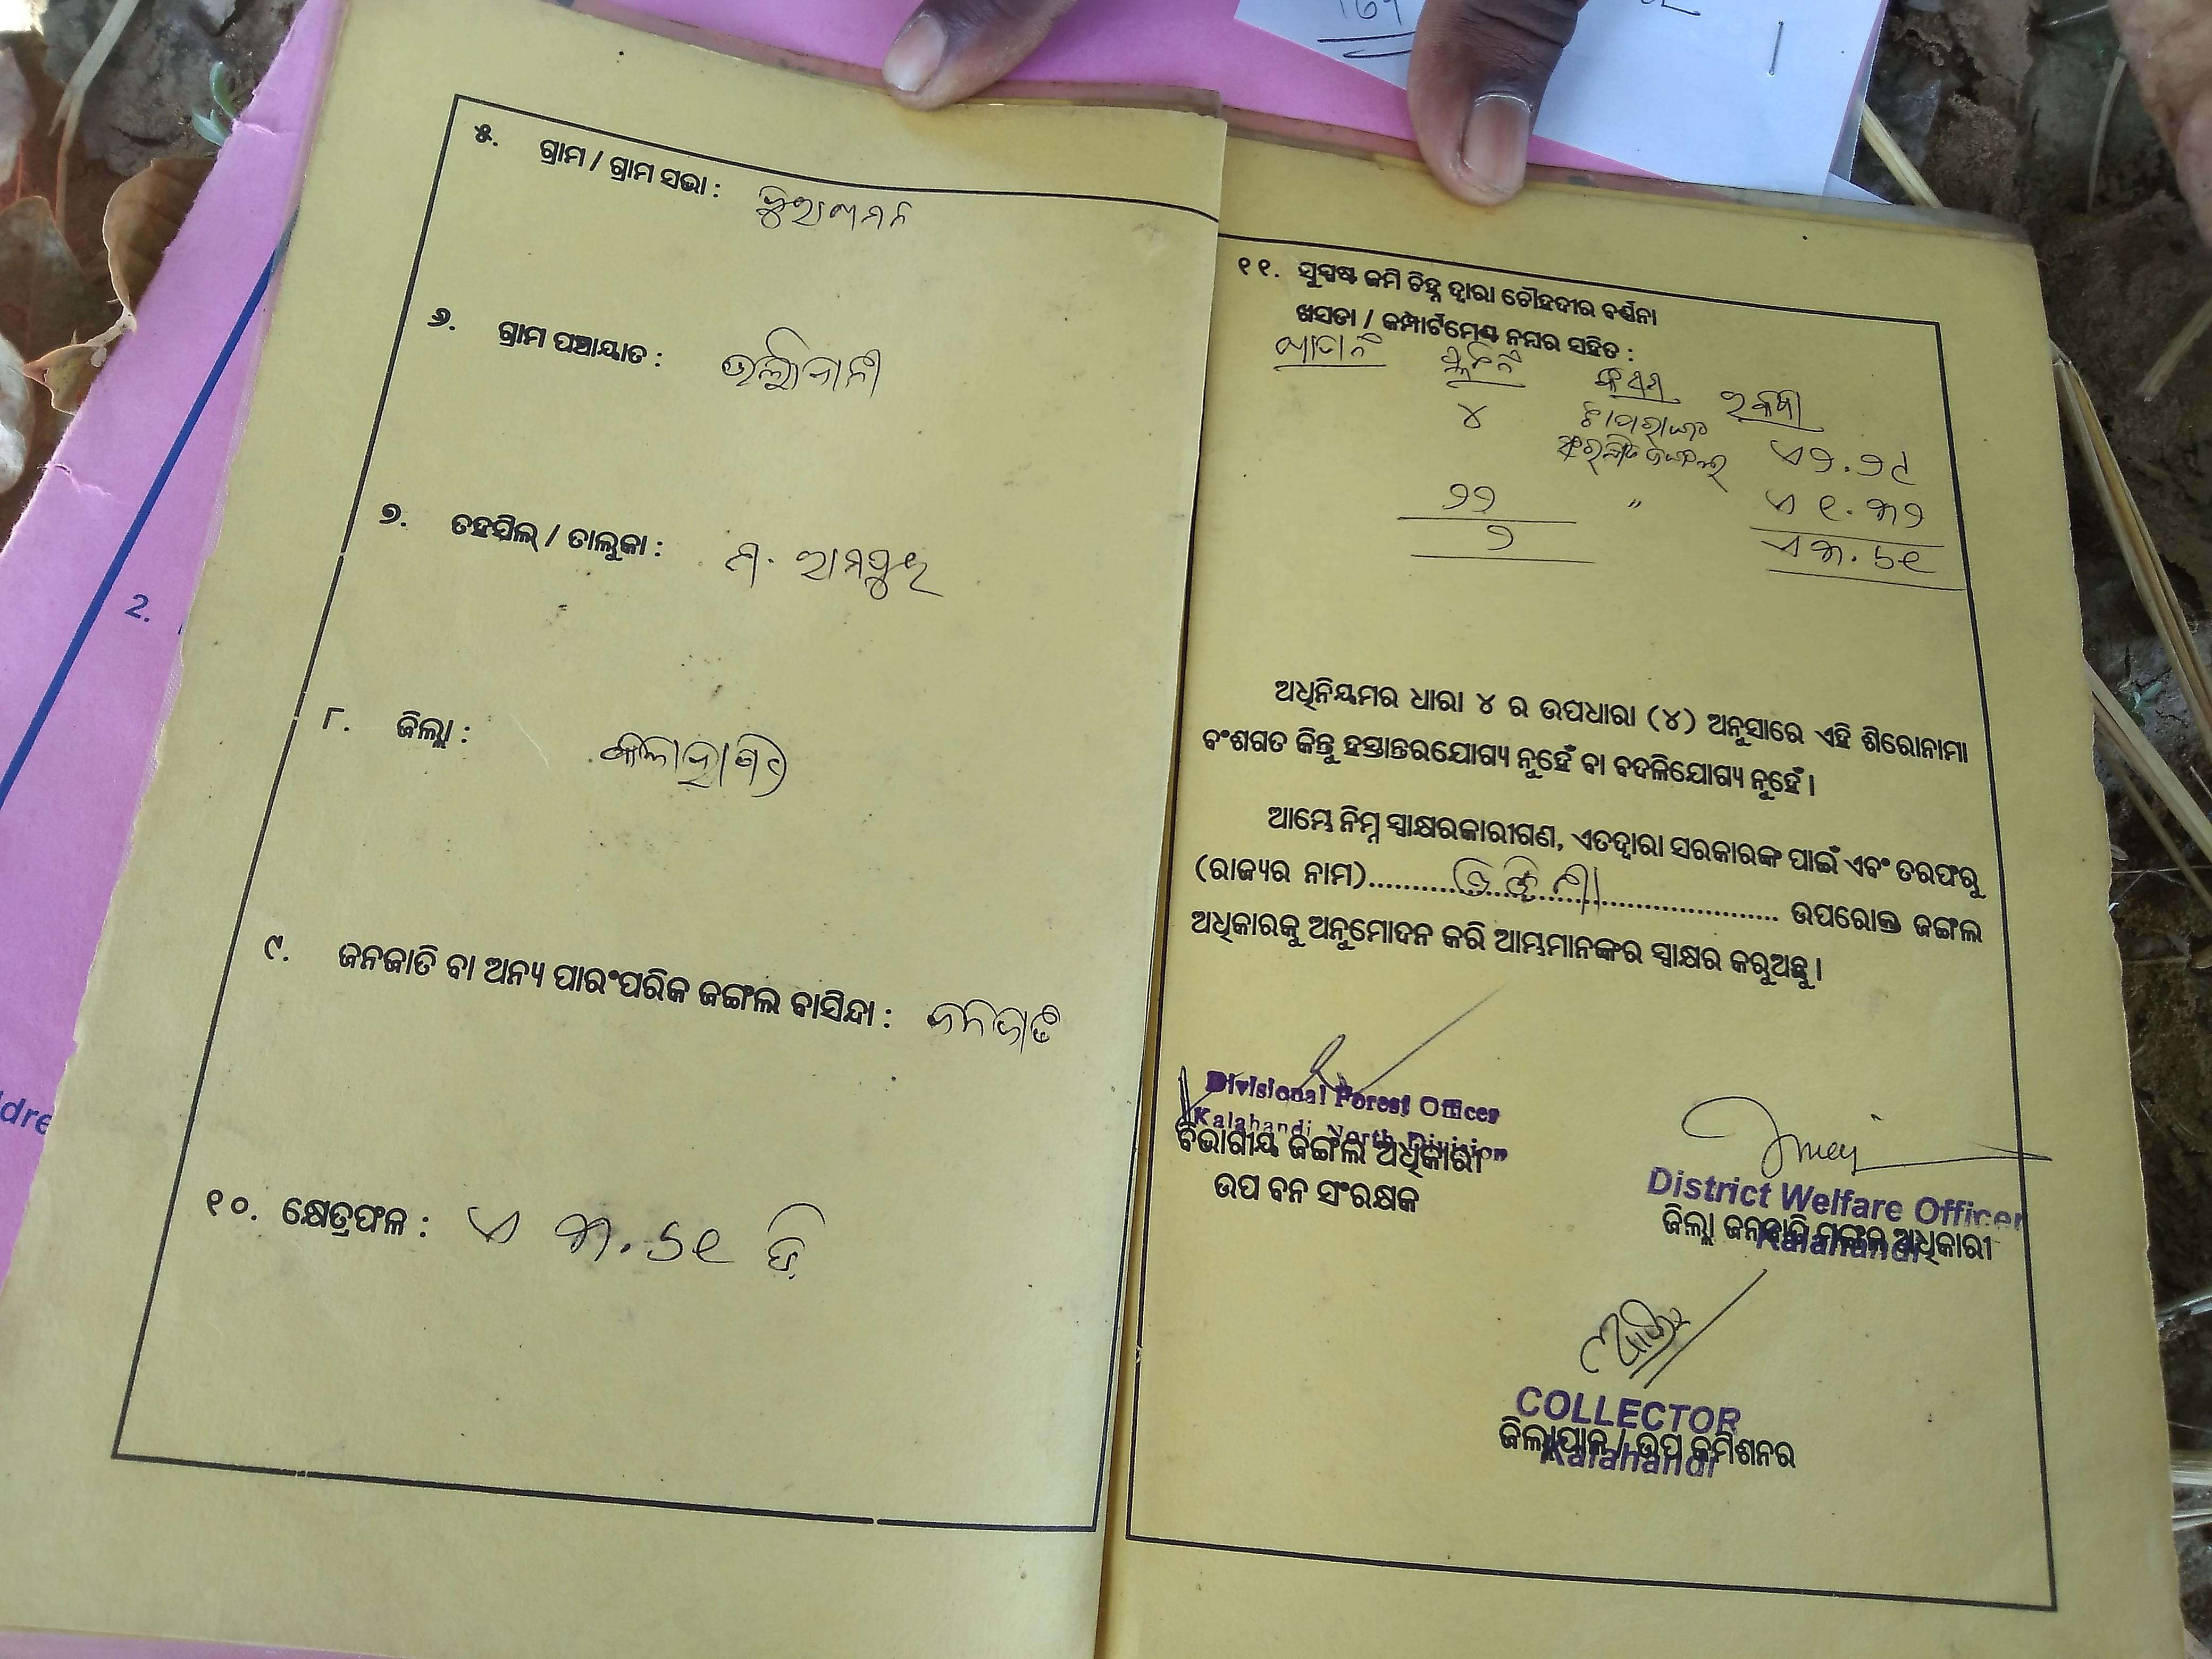 ୫. ଗ୍ରାମ / ଗ୍ରାମ ସଭା :
୬. ଗ୍ରାମ ପଞ୍ଚାୟାତ :
୭. ତହସିଲ୍ / ତାଲୁକା : ମ. ରାମପୁର
୮. ଜିଲ୍ଲା : କଳାହାଣ୍ଡି
୯. ଜନଜାତି ବା ଅନ୍ୟ ପାରଂପରିକ ଜଙ୍ଗଲ ବାସିନ୍ଦା : ଜନଜାତି
୧୦. କ୍ଷେତ୍ରଫଳ : ଏ ୩.୬୧ ଡି
୧୧. ସୁସ୍ପଷ୍ଟ ଜମି ଚିହ୍ନ ଦ୍ୱାରା ଚୌହଦୀର ବର୍ଣ୍ଣନା
ଖସଡା / କମ୍ପାର୍ଟମେଣ୍ଟ ନମ୍ବର ସହିତ :
ଖାତା ନଂ ପ୍ଲଟ ନଂ କିସମ ରକବା
୪ ଏ୨.୨୯
୨୨ " ଏ ୧.୩୨
୨ ଏ ୩.୬୧
ଅଧିନିୟମର ଧାରା ୪ ର ଉପଧାରା (୪) ଅନୁସାରେ ଏହି ଶିରୋନାମା
ବଂଶଗତ କିନ୍ତୁ ହସ୍ତାନ୍ତରଯୋଗ୍ୟ ନୁହେଁ ବା ବଦଳିଯୋଗ୍ୟ ନୁହେଁ।
ଆମ୍ଭେ ନିମ୍ନ ସ୍ୱାକ୍ଷରକାରୀଗଣ, ଏତଦ୍ୱାରା ସରକାରଙ୍କ ପାଇଁ ଏବଂ ତରଫରୁ
(ରାଜ୍ୟର ନାମ)..........ଓଡ଼ିଶା.......... ଉପରୋକ୍ତ ଜଙ୍ଗଲ
ଅଧିକାରକୁ ଅନୁମୋଦନ କରି ଆମ୍ଭମାନଙ୍କର ସ୍ୱାକ୍ଷର କରୁଅଛୁ।
Divisional Forest Officer
Kalahandi North Division
ବିଭାଗୀୟ ଜଙ୍ଗଲ ଅଧିକାରୀ
ଉପ ବନ ସଂରକ୍ଷକ
District Welfare Officer
ଜିଲ୍ଲା ଜନଜାତି ମଙ୍ଗଳ ଅଧିକାରୀ
Kalahandi
COLLECTOR
ଜିଲ୍ଲାପାଳ / ଉପ କମିଶନର
Kalahandi
2.